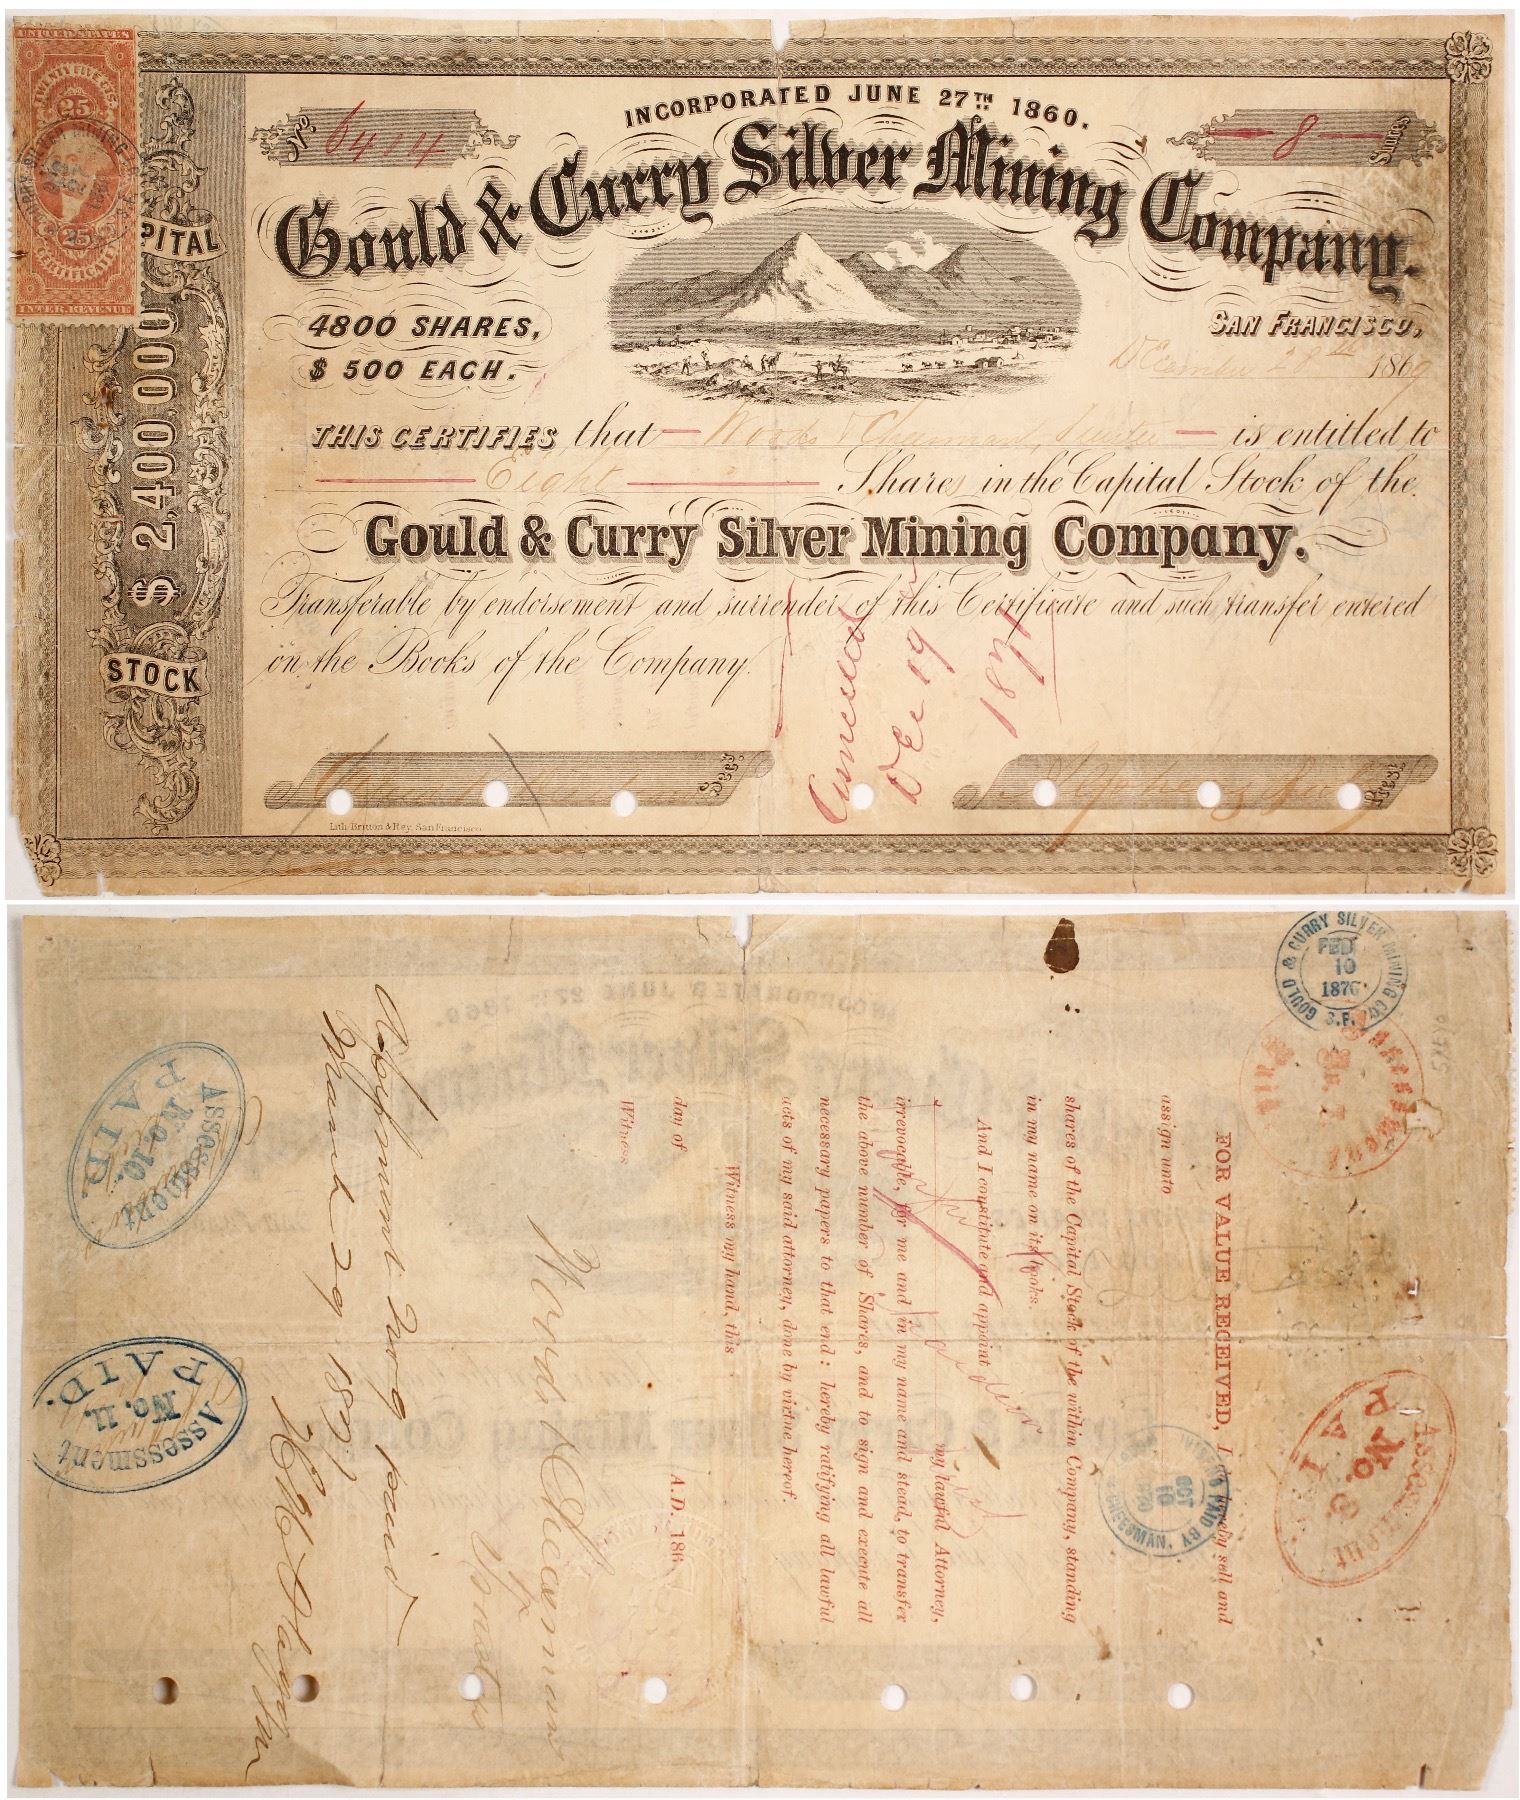 UNITED STATES
TWENTY FIVE CTS.
25 25
CERTIFICATE
INTER. REVENUE
CAPITAL
$ 2,400,000
STOCK
INCORPORATED JUNE 27TH 1860.
No 6414
8 Shares
Gould & Curry Silver Mining Company.
4800 SHARES,
$ 500 EACH.
SAN FRANCISCO,
December 28th 1869
THIS CERTIFIES that Woods & Cheesman, Trustee is entitled to
Eight Shares in the Capital Stock of the
Gould & Curry Silver Mining Company.
Transferable by endorsement and surrender of this Certificate and such transfer entered
on the Books of the Company.
Cancelled
Dec 19
1871
Secy.
Prest.
Lith. Britton & Rey, San Francisco
GOULD & CURRY SILVER MINING CO.
FEB
10
1870
S.F.
Assessment
No. 7
Paid
FOR VALUE RECEIVED, I hereby sell and
assign unto
shares of the Capital Stock of the within Company, standing
in my name on its books.
And I constitute and appoint
my lawful Attorney,
irrevocable, for me and in my name and stead, to transfer
the above number of Shares, and to sign and execute all
necessary papers to that end: hereby ratifying all lawful
acts of my said attorney, done by virtue hereof.
Witness my hand, this
day of A.D. 186
Witness
Woods & Cheesman
Trustee
Assessment No 9 paid
March 29 1871
Assessment
No. 8
PAID.
PAID BY
OCT
10
CHEESMAN,
Assessment
No. 10.
PAID.
Assessment
No. 11.
PAID.